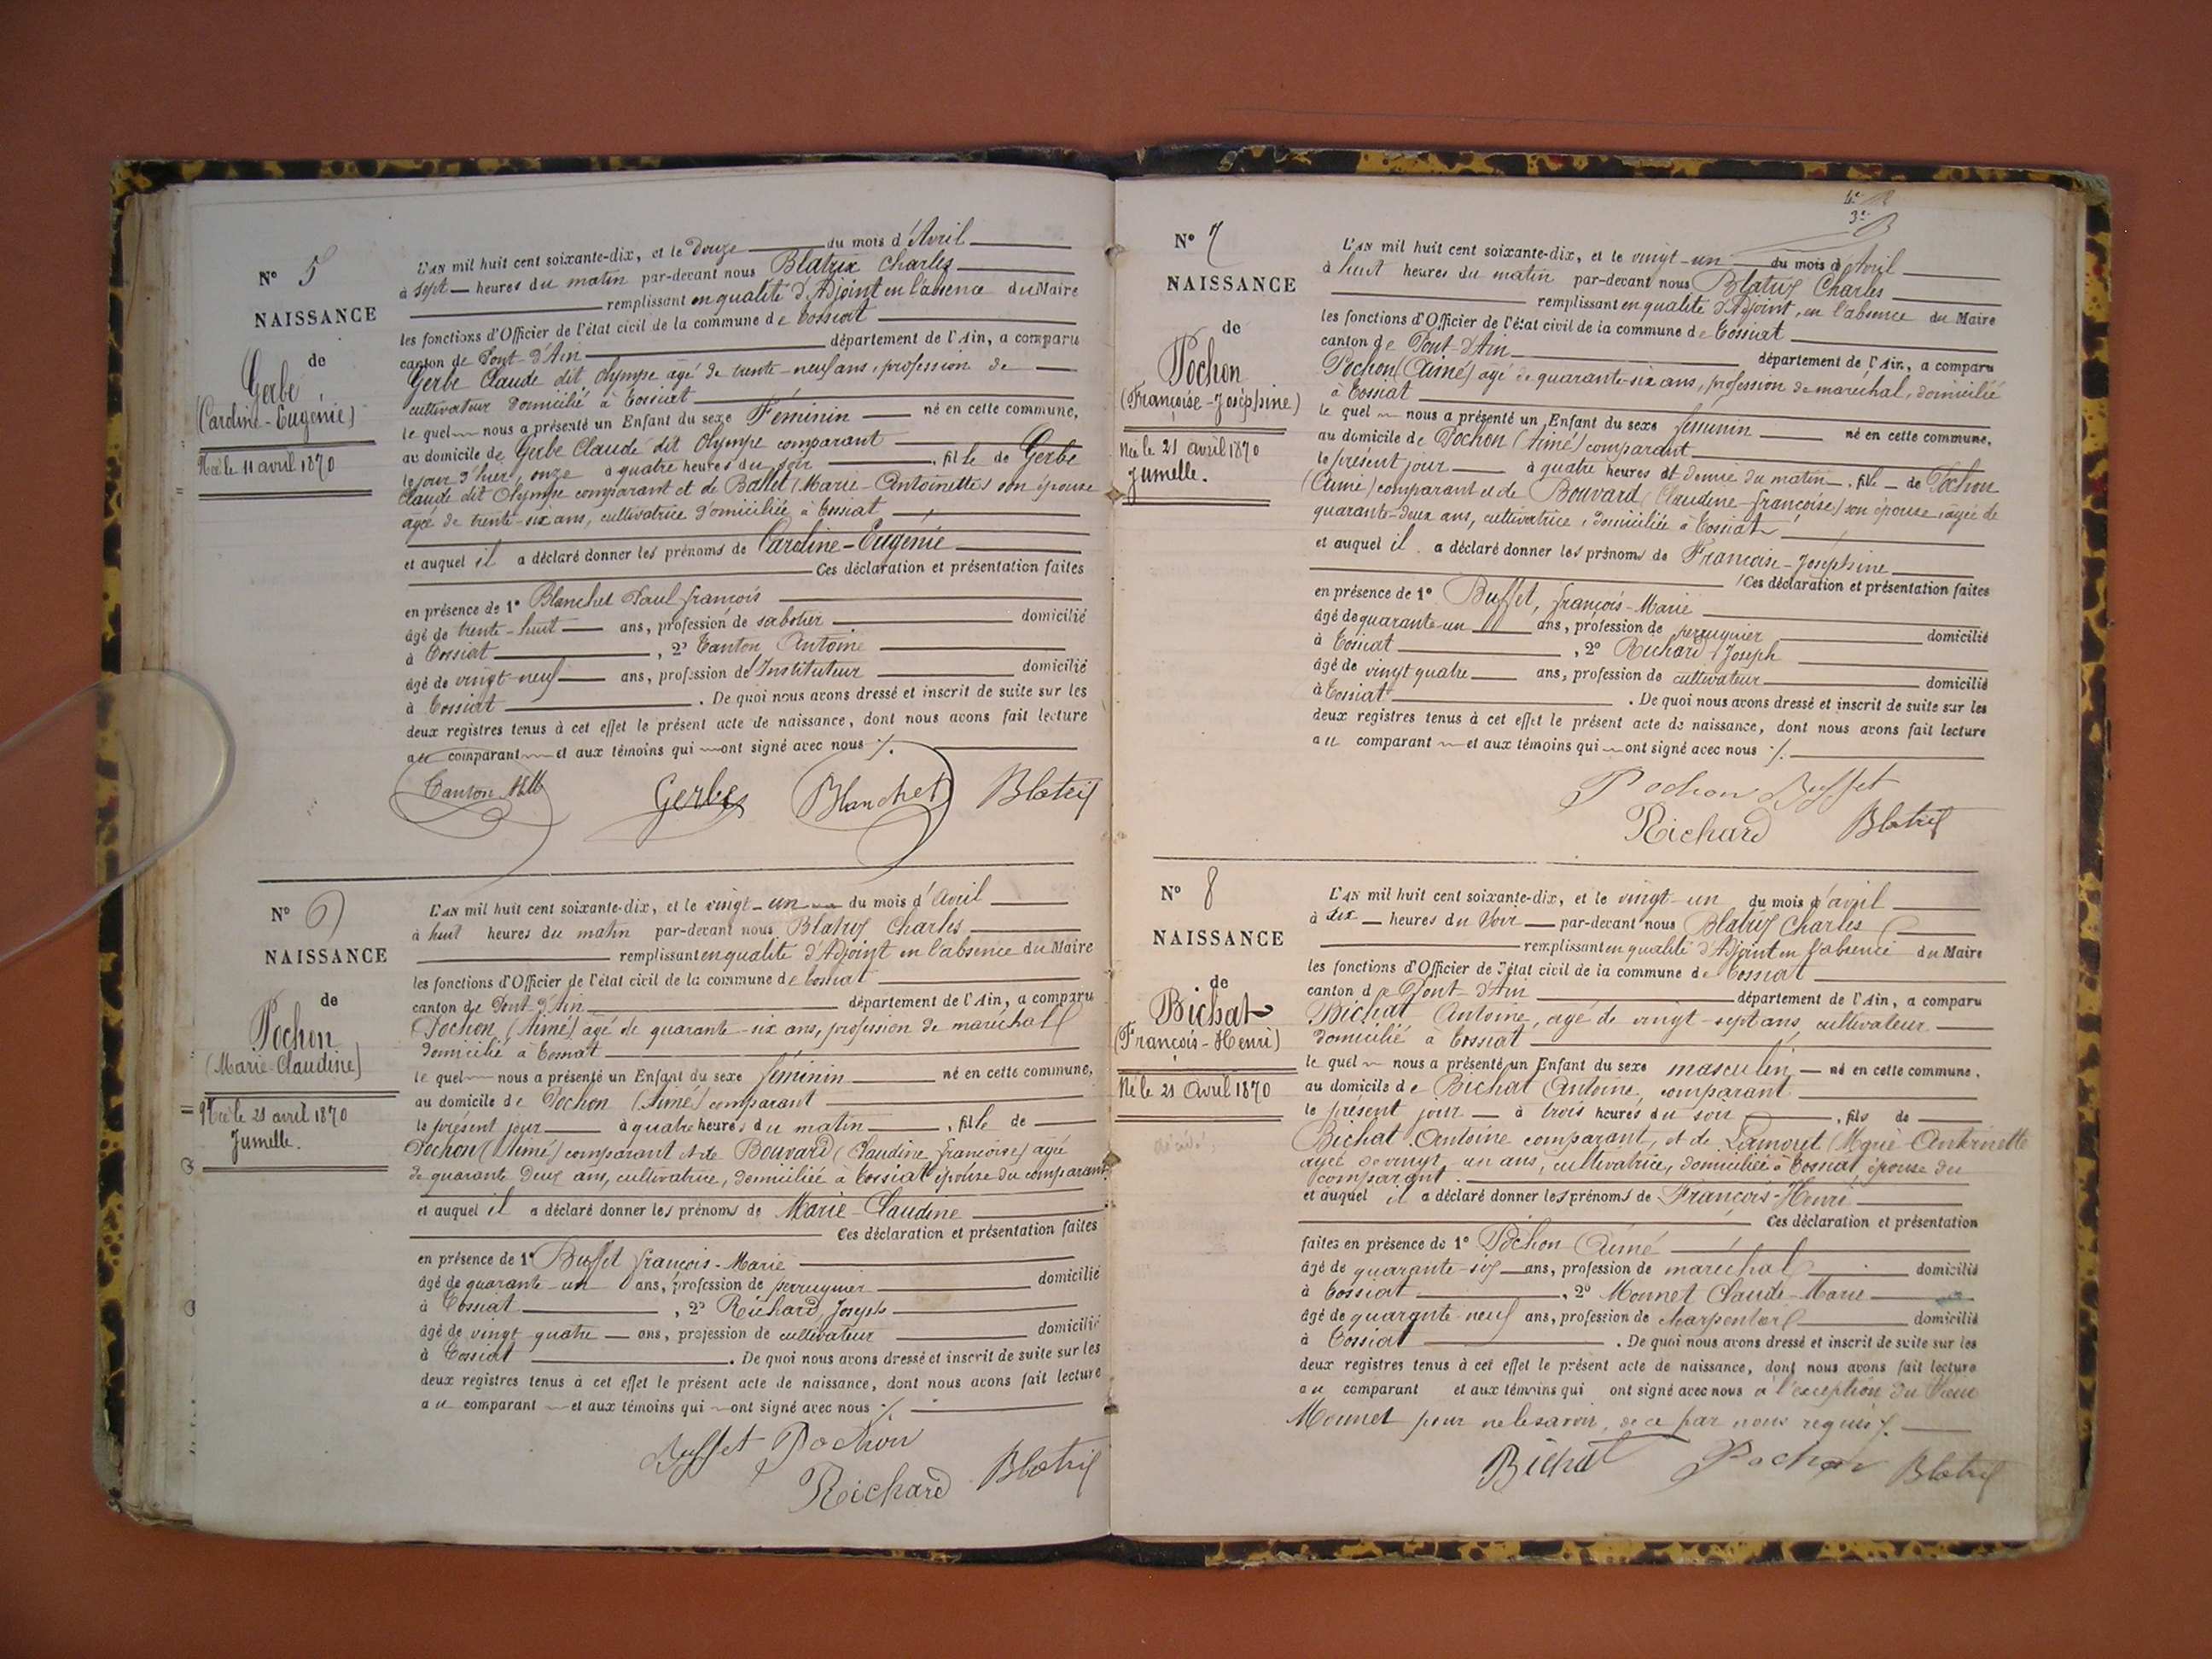 N° 5
NAISSANCE
de
Gerbe
(Caroline-Eugénie)
Née le 11 avril 1870
L'AN mil huit cent soixante-dix, et le Douze du mois d'Avril
à sept heures du matin par-devant nous Blatrix Charles
remplissant en qualité d'Adjoint en l'absence du Maire
les fonctions d'Officier de l'état civil de la commune de Tossiat
canton de Pont-d'Ain département de l'Ain, a comparu
Gerbe Claude dit Olympe agé de trente-neuf ans, profession de
cultivateur domicilié à Tossiat
le quel nous a présenté un Enfant du sexe Féminin né en cette commune,
au domicile de Gerbe Claude dit Olympe comparant
le jour d'hier, onze à quatre heures du soir, fille de Gerbe
Claude dit Olympe comparant et de Ballet (Marie-Antoinette) son épouse
agée de trente-six ans, cultivatrice domiciliée à Tossiat
et auquel il a déclaré donner les prénoms de Caroline-Eugénie
Ces déclaration et présentation faites
en présence de 1° Blanchet Paul françois
âgé de trente-huit ans, profession de sabotier domicilié
à Tossiat, 2° Canton Antoine
âgé de vingt-neuf ans, profession de Instituteur domicilié
à Tossiat. De quoi nous avons dressé et inscrit de suite sur les
deux registres tenus à cet effet le présent acte de naissance, dont nous avons fait lecture
au comparant et aux témoins qui ont signé avec nous ·/.
Canton Gerbe Blanchet Blatrix
N° 6
NAISSANCE
de
Pochon
(Marie-Claudine)
Née le 21 avril 1870
Jumelle.
L'AN mil huit cent soixante-dix, et le vingt-un du mois d'avril
à huit heures du matin par-devant nous Blatrix Charles
remplissant en qualité d'Adjoint en l'absence du Maire
les fonctions d'Officier de l'état civil de la commune de Tossiat
canton de Pont-d'Ain département de l'Ain, a comparu
Pochon (Aimé) agé de quarante-six ans, profession de maréchal
domicilié à Tossiat
le quel nous a présenté un Enfant du sexe féminin né en cette commune,
au domicile de Pochon (Aimé) comparant
le présent jour à quatre heures du matin, fille de
Pochon (Aimé) comparant et de Bouvard (Claudine françoise) agée
de quarante deux ans, cultivatrice, domiciliée à Tossiat épouse du comparant
et auquel il a déclaré donner les prénoms de Marie-Claudine
Ces déclaration et présentation faites
en présence de 1° Buffet françois-Marie
âgé de quarante-un ans, profession de perruquier domicilié
à Tossiat, 2° Richard, Joseph
âgé de vingt quatre ans, profession de cultivateur domicilié
à Tossiat. De quoi nous avons dressé et inscrit de suite sur les
deux registres tenus à cet effet le présent acte de naissance, dont nous avons fait lecture
au comparant et aux témoins qui ont signé avec nous ·/.
Buffet Pochon
Richard Blatrix
N° 7
NAISSANCE
de
Pochon
(Françoise-Joséphine)
Née le 21 avril 1870
Jumelle.
3e
L'AN mil huit cent soixante-dix, et le vingt-un du mois d'Avril
à huit heures du matin par-devant nous Blatrix Charles
remplissant en qualité d'Adjoint, en l'absence du Maire
les fonctions d'Officier de l'état civil de la commune de Tossiat
canton de Pont-d'Ain département de l'Ain, a comparu
Pochon (Aimé) agé de quarante-six ans, profession de maréchal, domicilié
à Tossiat
le quel nous a présenté un Enfant du sexe féminin né en cette commune,
au domicile de Pochon (Aimé) comparant
le présent jour à quatre heures et demie du matin, fille de Pochon
(Aimé) comparant et de Bouvard (Claudine-françoise) son épouse, agée de
quarante-deux ans, cultivatrice, domiciliée à Tossiat
et auquel il a déclaré donner les prénoms de Françoise-Joséphine
Ces déclaration et présentation faites
en présence de 1° Buffet, françois-Marie
âgé de quarante-un ans, profession de perruquier domicilié
à Tossiat, 2° Richard, Joseph
âgé de vingt quatre ans, profession de cultivateur domicilié
à Tossiat. De quoi nous avons dressé et inscrit de suite sur les
deux registres tenus à cet effet le présent acte de naissance, dont nous avons fait lecture
au comparant et aux témoins qui ont signé avec nous ·/.
Pochon Buffet
Richard Blatrix
N° 8
NAISSANCE
de
Bichat
(François-Henri)
Né le 21 Avril 1870
L'AN mil huit cent soixante-dix, et le vingt-un du mois d'avril
à six heures du soir par-devant nous Blatrix Charles
remplissant en qualité d'Adjoint en l'absence du Maire
les fonctions d'Officier de l'état civil de la commune de Tossiat
canton de Pont-d'Ain département de l'Ain, a comparu
Bichat Antoine, agé de vingt-sept ans, cultivateur
domicilié à Tossiat
le quel nous a présenté un Enfant du sexe masculin né en cette commune,
au domicile de Bichat Antoine, comparant
le présent jour à trois heures du soir, fils de
Bichat Antoine comparant, et de Lamout (Marie Antoinette
agée de vingt un ans, cultivatrice, domiciliée à Tossiat, épouse du
comparant
et auquel il a déclaré donner les prénoms de François-Henri
Ces déclaration et présentation
faites en présence de 1° Pochon Aimé
âgé de quarante-six ans, profession de maréchal domicilié
à Tossiat, 2° Monnet Claude-Marie
âgé de quarante-neuf ans, profession de charpentier domicilié
à Tossiat. De quoi nous avons dressé et inscrit de suite sur les
deux registres tenus à cet effet le présent acte de naissance, dont nous avons fait lecture
au comparant et aux témoins qui ont signé avec nous à l'exception du sieur
Monnet pour ne le savoir, de ce par nous requis ·/.
Bichat Pochon Blatrix